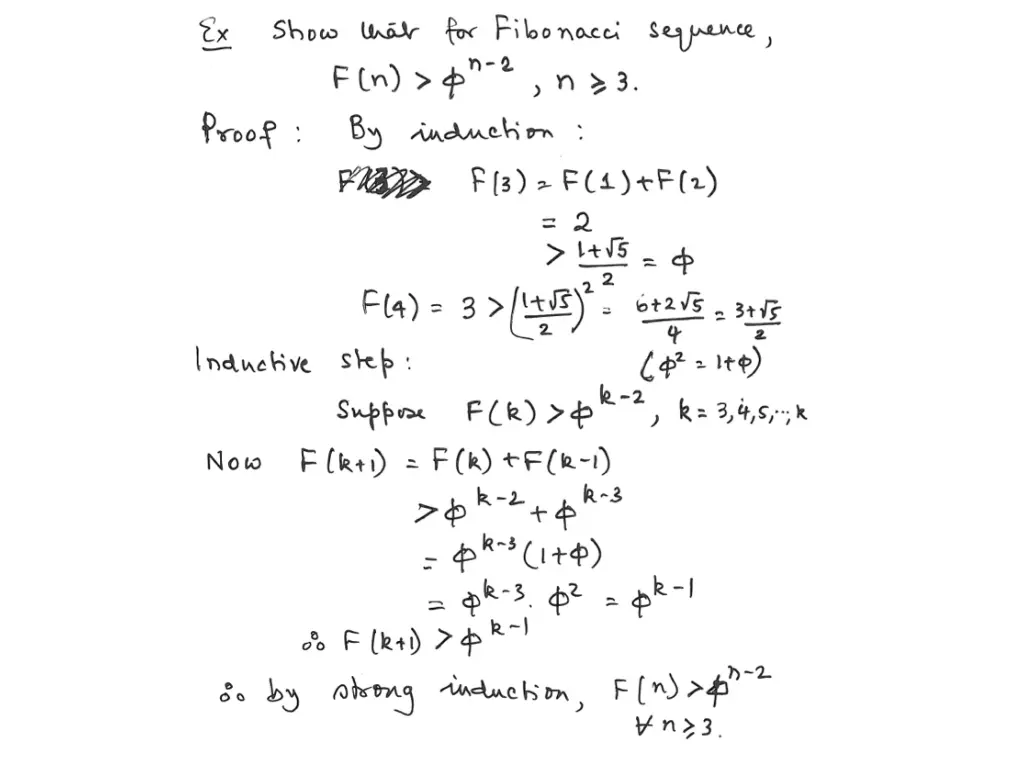 Ex Show that for Fibonacci sequence,
F(n) > ϕ^{n-2}, n ⩾ 3.
Proof: By induction:
F(3) = F(1)+F(2)
= 2
> (1+√5)/2 = ϕ
F(4) = 3 > ((1+√5)/2)^2 = (6+2√5)/4 = (3+√5)/2
Inductive step: (ϕ² = 1+ϕ)
Suppose F(k) > ϕ^{k-2}, k = 3,4,5,..,k
Now F(k+1) = F(k) + F(k-1)
> ϕ^{k-2} + ϕ^{k-3}
= ϕ^{k-3}(1+ϕ)
= ϕ^{k-3}. ϕ² = ϕ^{k-1}
∴ F(k+1) > ϕ^{k-1}
∴ by strong induction, F(n) > ϕ^{n-2}
∀ n ⩾ 3.